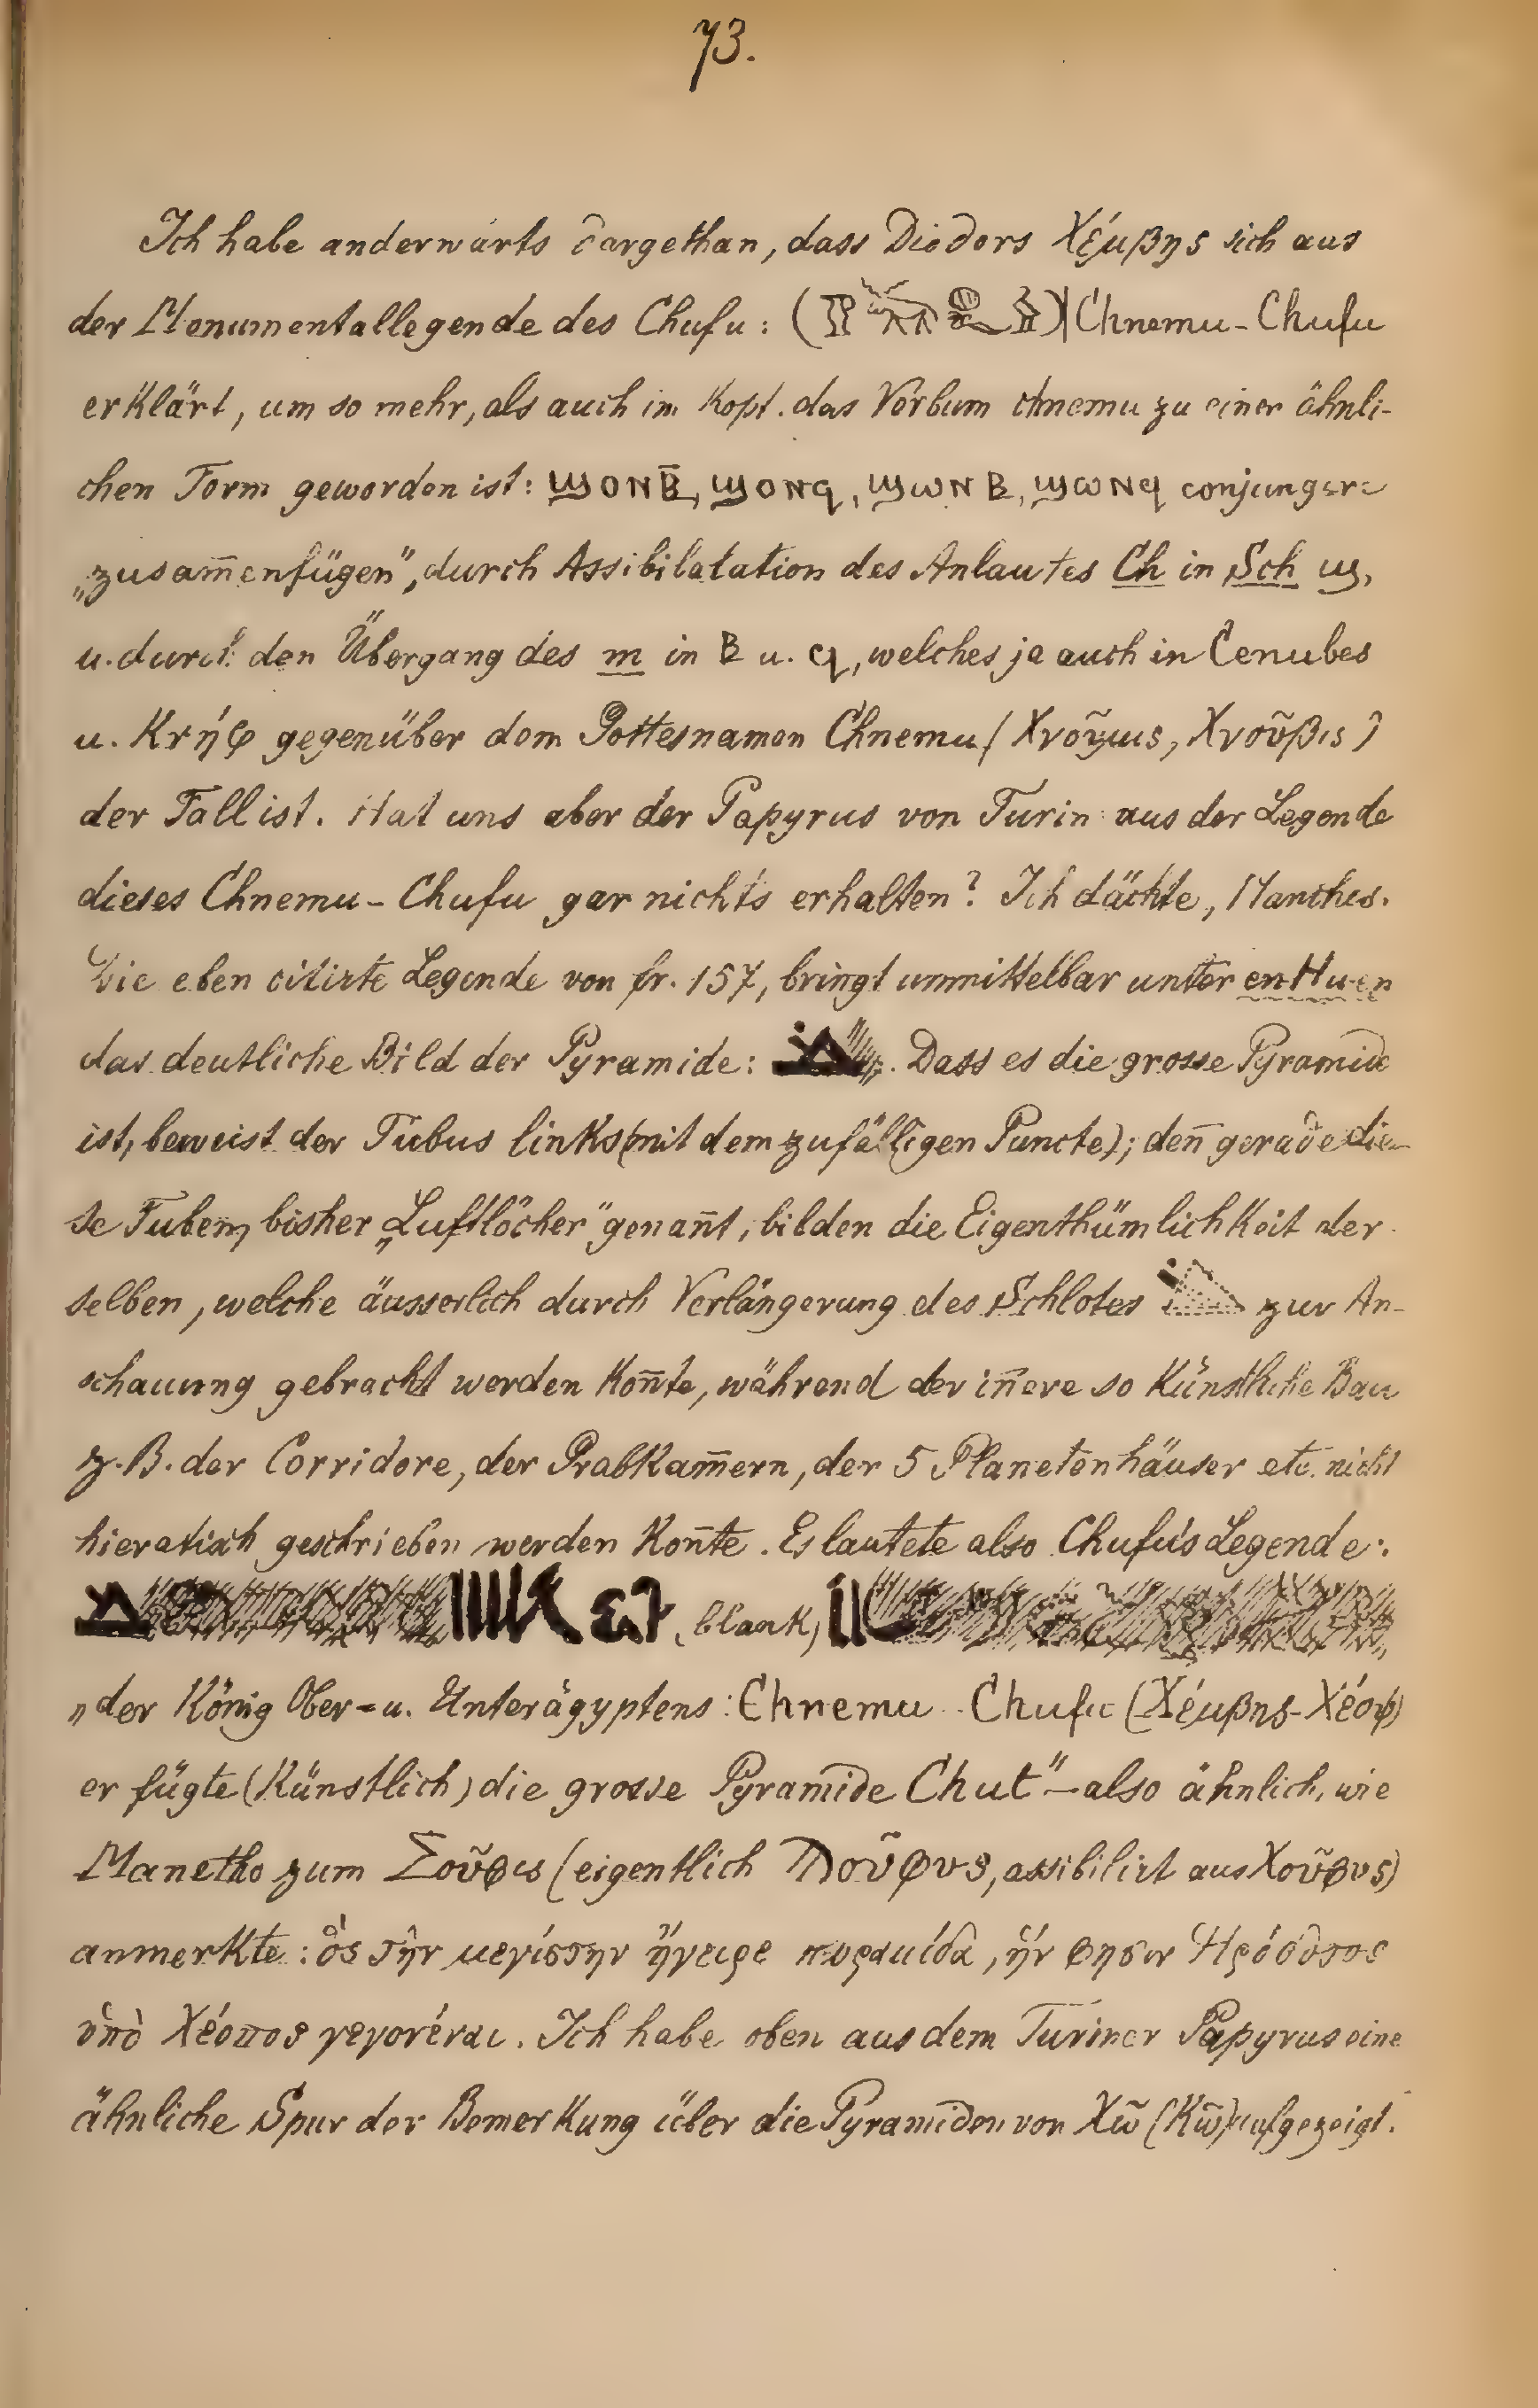 73.
Ich habe anderwärts dargethan, dass Diodors Χέμβης sich aus
der Monumentallegende des Chufu: ( )| Chnemu-Chufu
erklärt, um so mehr, als auch im Kopt. das Verbum chnemu zu einer ähnli-
chen Form geworden ist: ϣⲟⲛⲃ̄, ϣⲟⲛϥ, ϣⲱⲛⲃ, ϣⲱⲛϥ conjungere
„zusam̄enfügen", durch Assibilatation des Anlautes Ch in Sch ϣ,
u. durch den Übergang des m in ⲃ u. ϥ, welches ja auch in Cenubes
u. Κνήφ gegenüber dem Gottesnamen Chnemu (Χνοῦμις, Χνοῦβις)
der Fall ist. Hat uns aber der Papyrus von Turin aus der Legende
dieses Chnemu-Chufu gar nichts erhalten? Ich dächte, Manches.
Die eben citirte Legende von fr. 157, bringt unmittelbar unter en Hu-en
das deutliche Bild der Pyramide: . Dass es die grosse Pyramide
ist, beweist der Tubus links (mit dem zufälligen Puncte); den̄ gerade die-
se Tuben, bisher „Luftlöcher" genan̄t, bilden die Eigenthümlichkeit der
selben, welche äusserlich durch Verlängerung des Schlotes zur An-
schauung gebracht werden kon̄te, während der in̄ere so künstliche Bau
z.B. der Corridore, der Grabkam̄ern, der 5 Planetenhäuser etc. nicht
hieratisch geschrieben werden kon̄te. Es lautete also Chufu's Legende:
, blank,
„der König Ober- u. Unterägyptens: Chnemu Chufu (Χέμβης-Χέοψ)
er fügte (künstlich) die grosse Pyramide Chut" – also ähnlich, wie
Manetho zum Σοῦφις (eigentlich οῦφυς, assibilirt aus Χοῦφυς)
anmerkte: ὃς τὴν μεγίστην ἤγειρε πυραμίδα, ἥν φησιν Ἡρόδοτος
ὑπὸ Χέοπος γεγονέναι. Ich habe oben aus dem Turiner Papyrus eine
ähnliche Spur der Bemerkung über die Pyramiden von Χῶ (Κῶ) aufgezeigt.